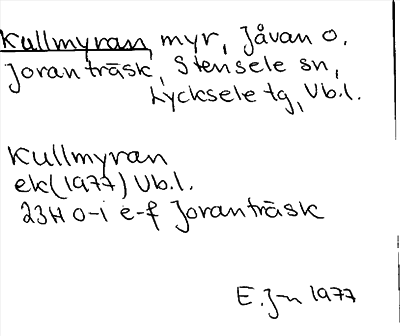 Kullmyran, myr, Jåvan o.
Joranträsk, Stensele sn,
Lycksele tg, Vb.l.
Kullmyran
ek(1977) Vb.l.
23H 0-i e-f Joranträsk
E.J-n 1977